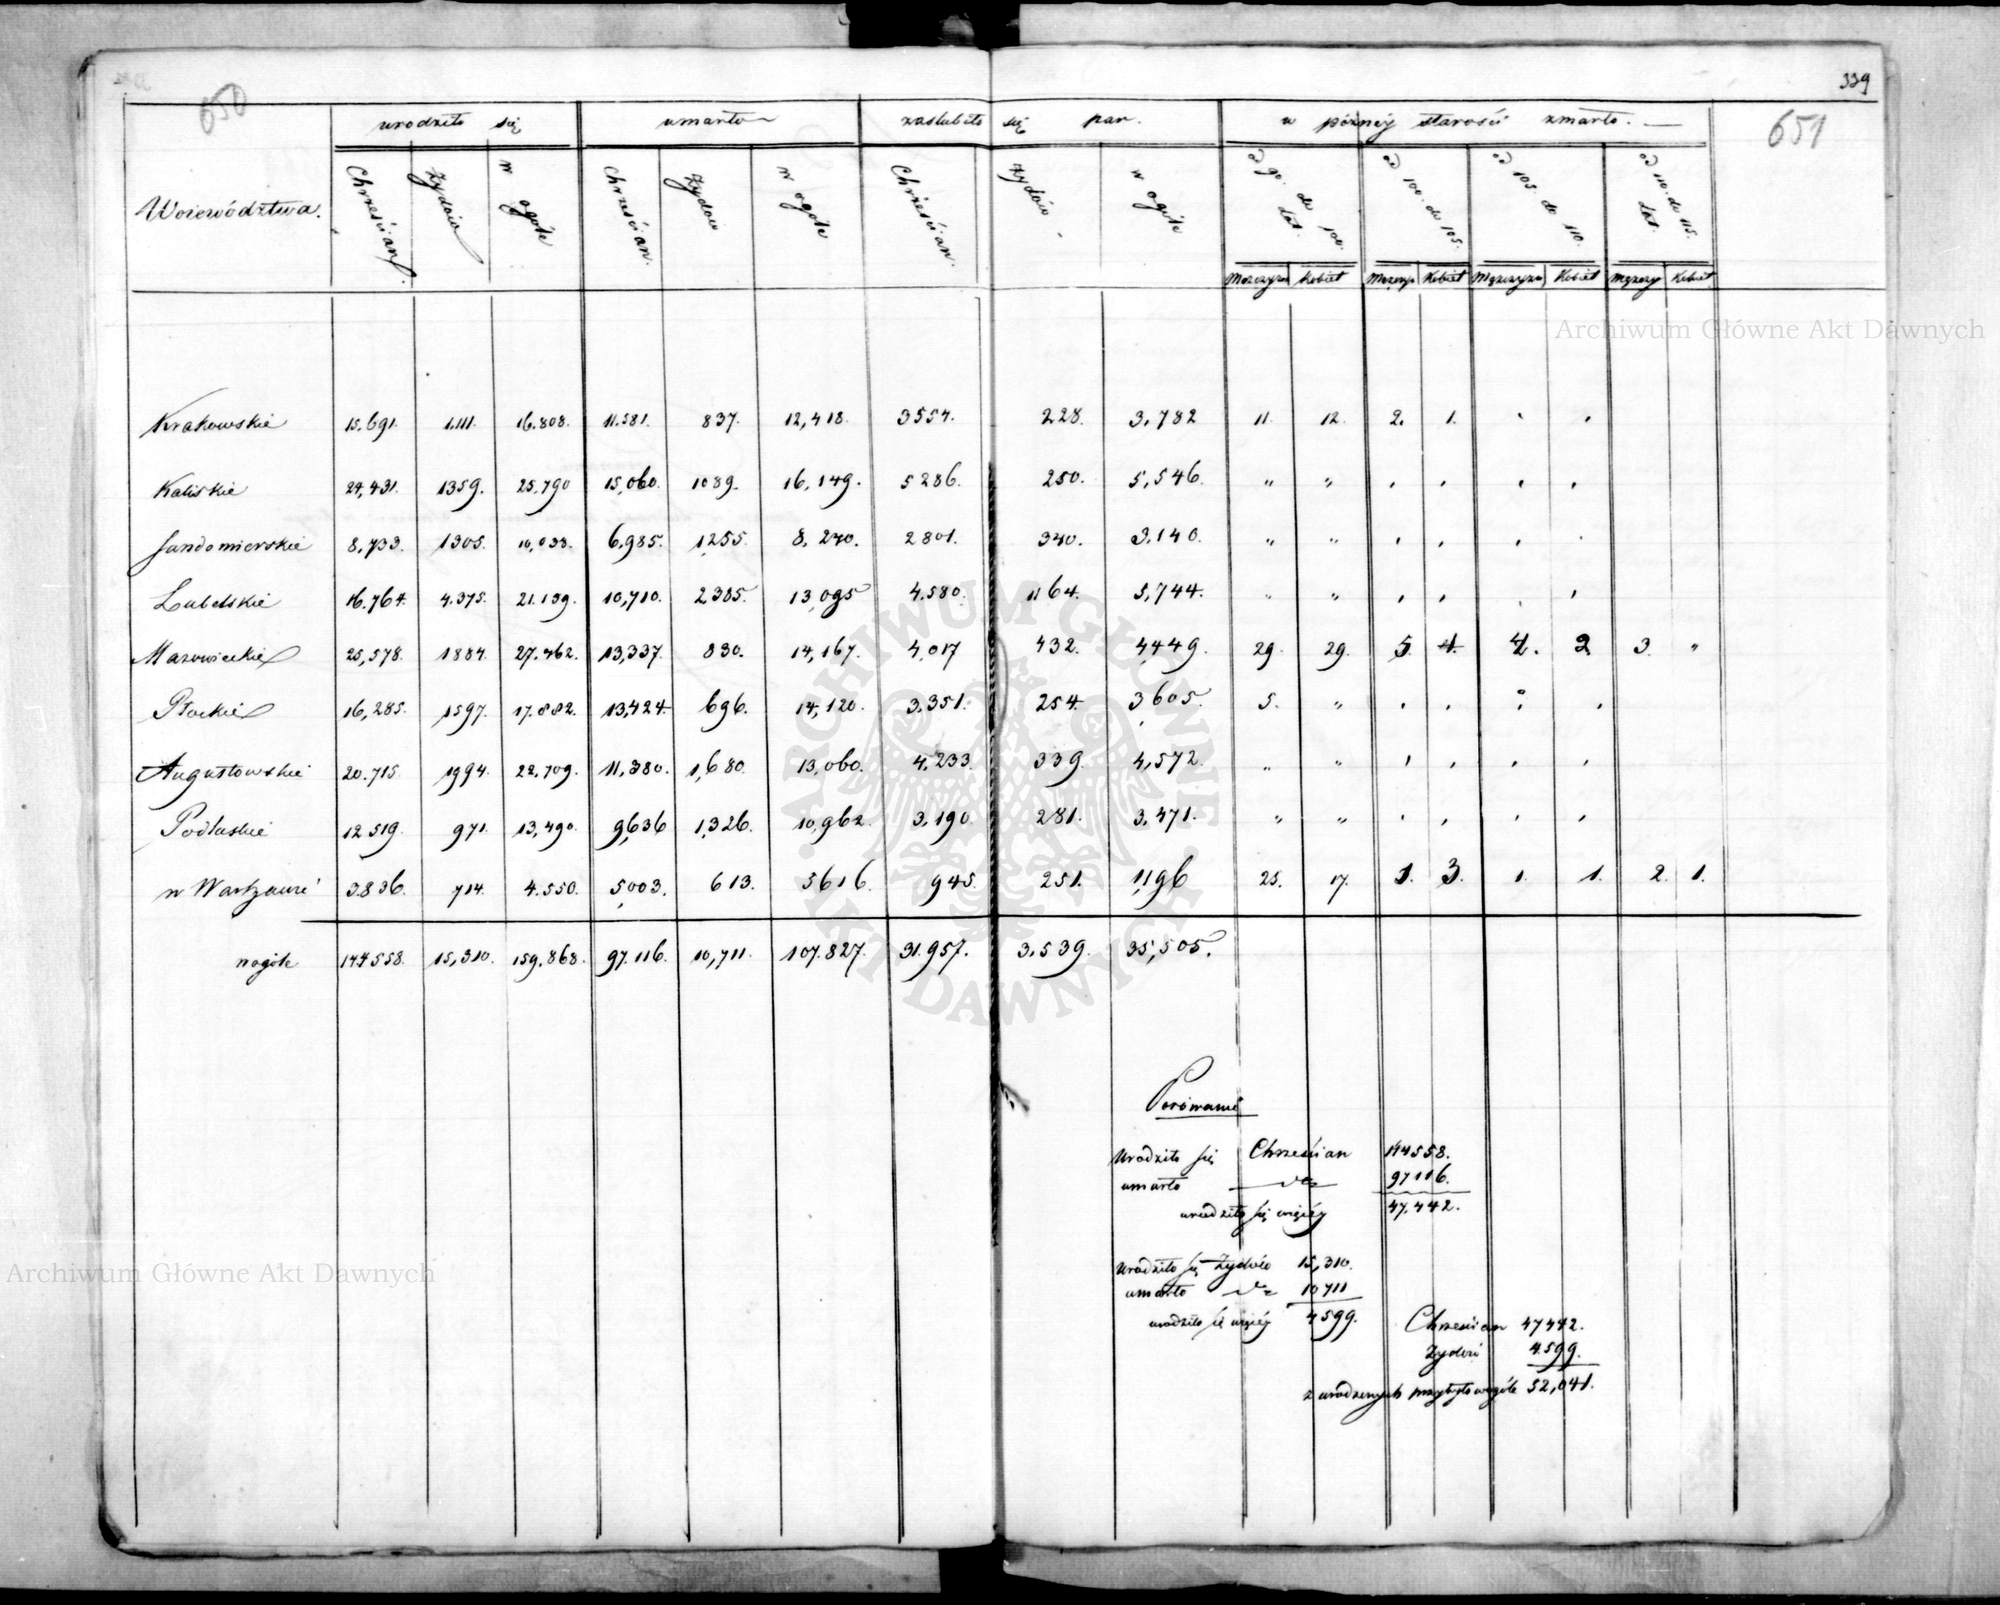 650
339
651
urodziło się umarło zaślubiło się par. w późnéy starości zmarło.
Woiewództwa.
Chrześcian Żydów w ogóle Chrześcian. Żydów w ogóle Chrześcian. Żydów w ogóle od 90. do 100. lat. od 100. do 105. od 105. do 110. od 110. do 115. lat
Męzczyzn Kobiet Męzczyz Kobiet Męzczyzn Kobiet Męzczy Kobiet
Krakowskie 15.691. 1.111. 16.808. 11.581. 837. 12,418. 3554. 228. 3.782 11. 12. 2. 1. . .
Kaliskie 24,431. 1359. 25.790 15,060. 1089. 16,149. 5286. 250. 5,546. " " . . . .
Sandomierskie 8,733. 1305. 10,038. 6,985. 1255. 8,240. 2801. 340. 3.140. " " . . . .
Lubelskie 16.764. 4.375. 21.139. 10,710. 2385. 13,095 4.580. 1164. 5,744. " " . . . .
Mazowieckie 25,578. 1884. 27.462. 13,337. 830. 14,167. 4,017 432. 4449. 29. 29. 5. 4. 4. 2 3. "
Płockie 16,285. 1597. 17.882. 13,424. 696. 14,120. 3,351. 254 3,605. 5. " . . : .
Augustowskie 20.715. 1994. 22.709. 11,380. 1,680. 13,060. 4,233. 339. 4,572. " " . . . .
Podlaskie 12519. 971. 13,490. 9,636 1,326. 10,962. 3,190. 281. 3,471. " " . . . .
w Warszawie 3.836. 714. 4.550. 5,003. 613. 5616. 945. 251. 1,196 25. 17. 3. 3. 1. 1. 2. 1.
wogóle 144558. 15,310. 159.868. 97.116. 10,711. 107.827. 31.957. 3.539. 35,505.
Porównanie
Urodziło się Chrześcian 144558.
umarło 97116.
urodziło się więcéy 47.442.
Urodziło się Żydów 15,310.
umarło 10711
urodziło się więcéy 4599.
Chrześcian 47442.
Żydów 4.599.
z urodzonych przybyło wogóle 52,041.
Archiwum Główne Akt Dawnych
Archiwum Główne Akt Dawnych
ARCHIWUM GŁÓWNE AKT DAWNYCH